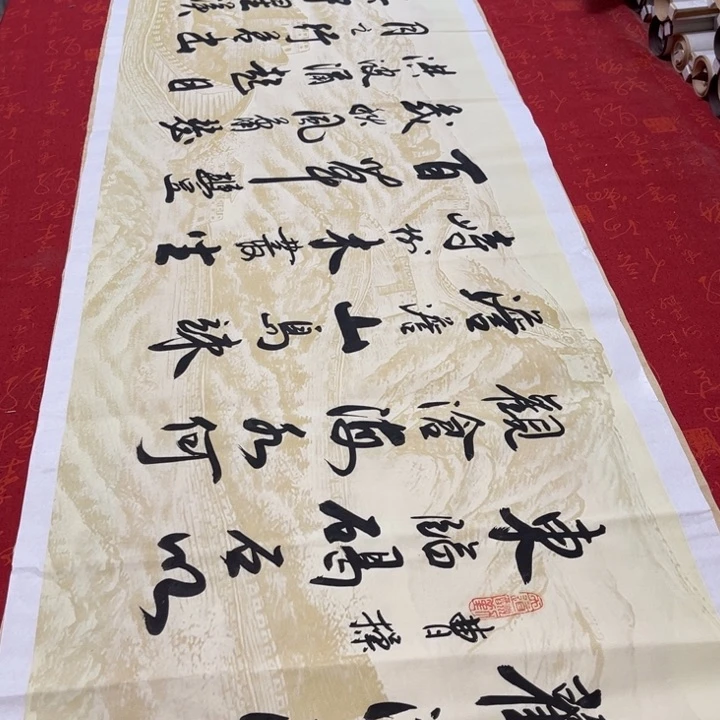 觀滄
曹操
東臨碣石以
觀滄海水何
澹澹山島竦
峙樹木叢生
百草豐
茂秋風蕭瑟
洪波涌起日
月之行若出